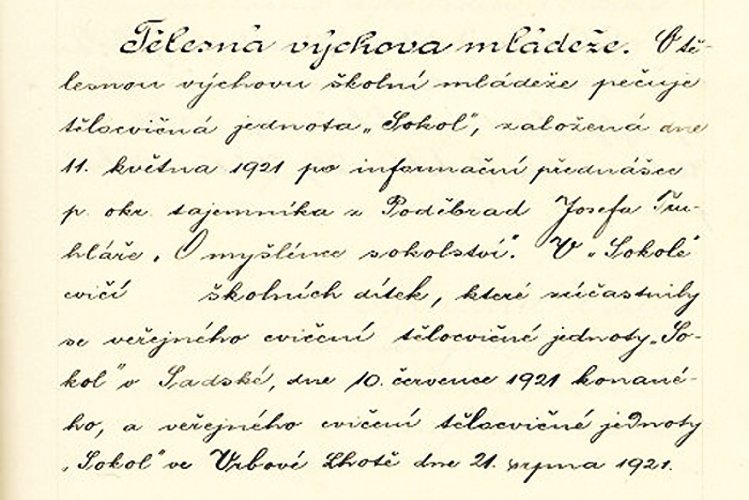 Tělesná výchova mládeže. O tě-
lesnou výchovu školní mládeže pečuje
tělocvičná jednota „Sokol", založená dne
11. května 1921 po informační přednášce
p. okr. tajemníka z Poděbrad Josefa Tru-
hláře „O myšlénce sokolství". V „Sokole"
cvičí školních dítek, které zúčastnily
se veřejného cvičení tělocvičné jednoty „So-
kol" v Sadské, dne 10. července 1921 konané-
ho, a veřejného cvičení tělocvičné jednoty
„Sokol" ve Vrbové Lhotě dne 21. srpna 1921.